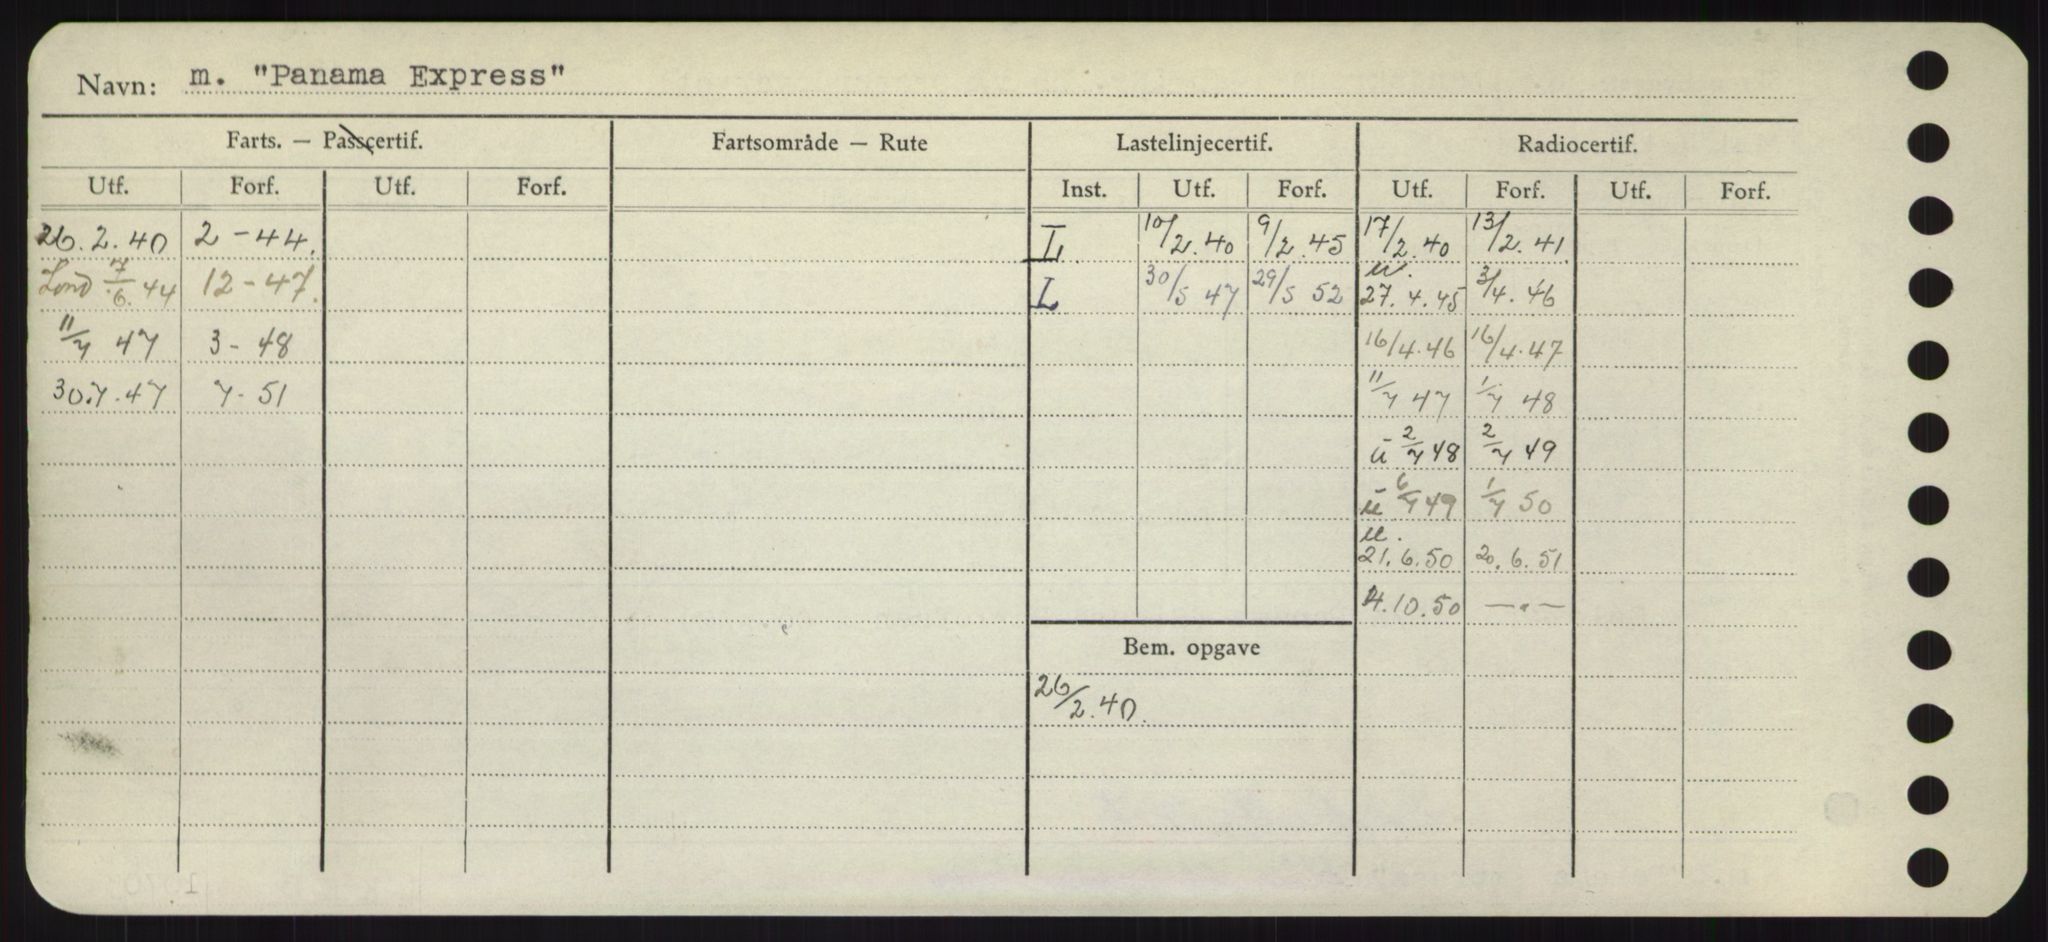 Navn: m. "Panama Express"
Farts. — Passcertif. Fartsområde — Rute Lastelinjecertif. Radiocertif.
Utf. Forf. Utf. Forf. Inst. Utf. Forf. Utf. Forf. Utf. Forf.
26.2.40 2-44. L 10/2.40 9/2.45 17/2.40 13/2.41
Lond 7/6.44 12-47. L 30/5 47 29/5 52 u. 27.4.45 3/4.46
11/7 47 3-48 16/4.46 16/4.47
30.7.47 7-51 11/7 47 1/7 48
u 2/7 48 2/7 49
u 6/7 49 1/7 50
u.
21.6.50 20.6.51
4.10.50 —"—
Bem. opgave
26/2.40.